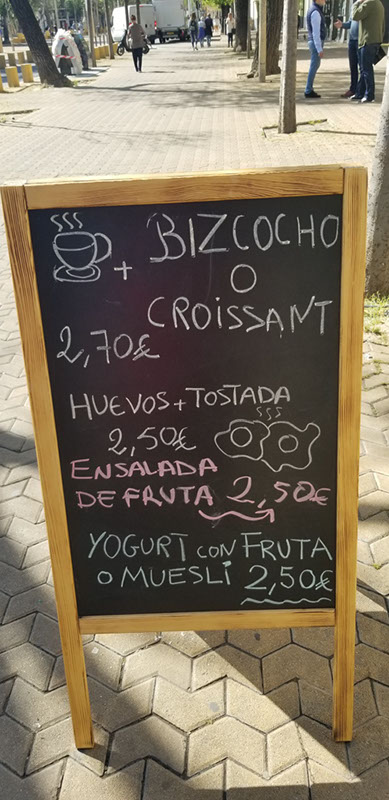 + BIZCOCHO
O
CROISSANT
2,70€
HUEVOS + TOSTADA
2,50€
ENSALADA
DE FRUTA 2,50€
YOGURT CON FRUTA
O MUESLI 2,50€